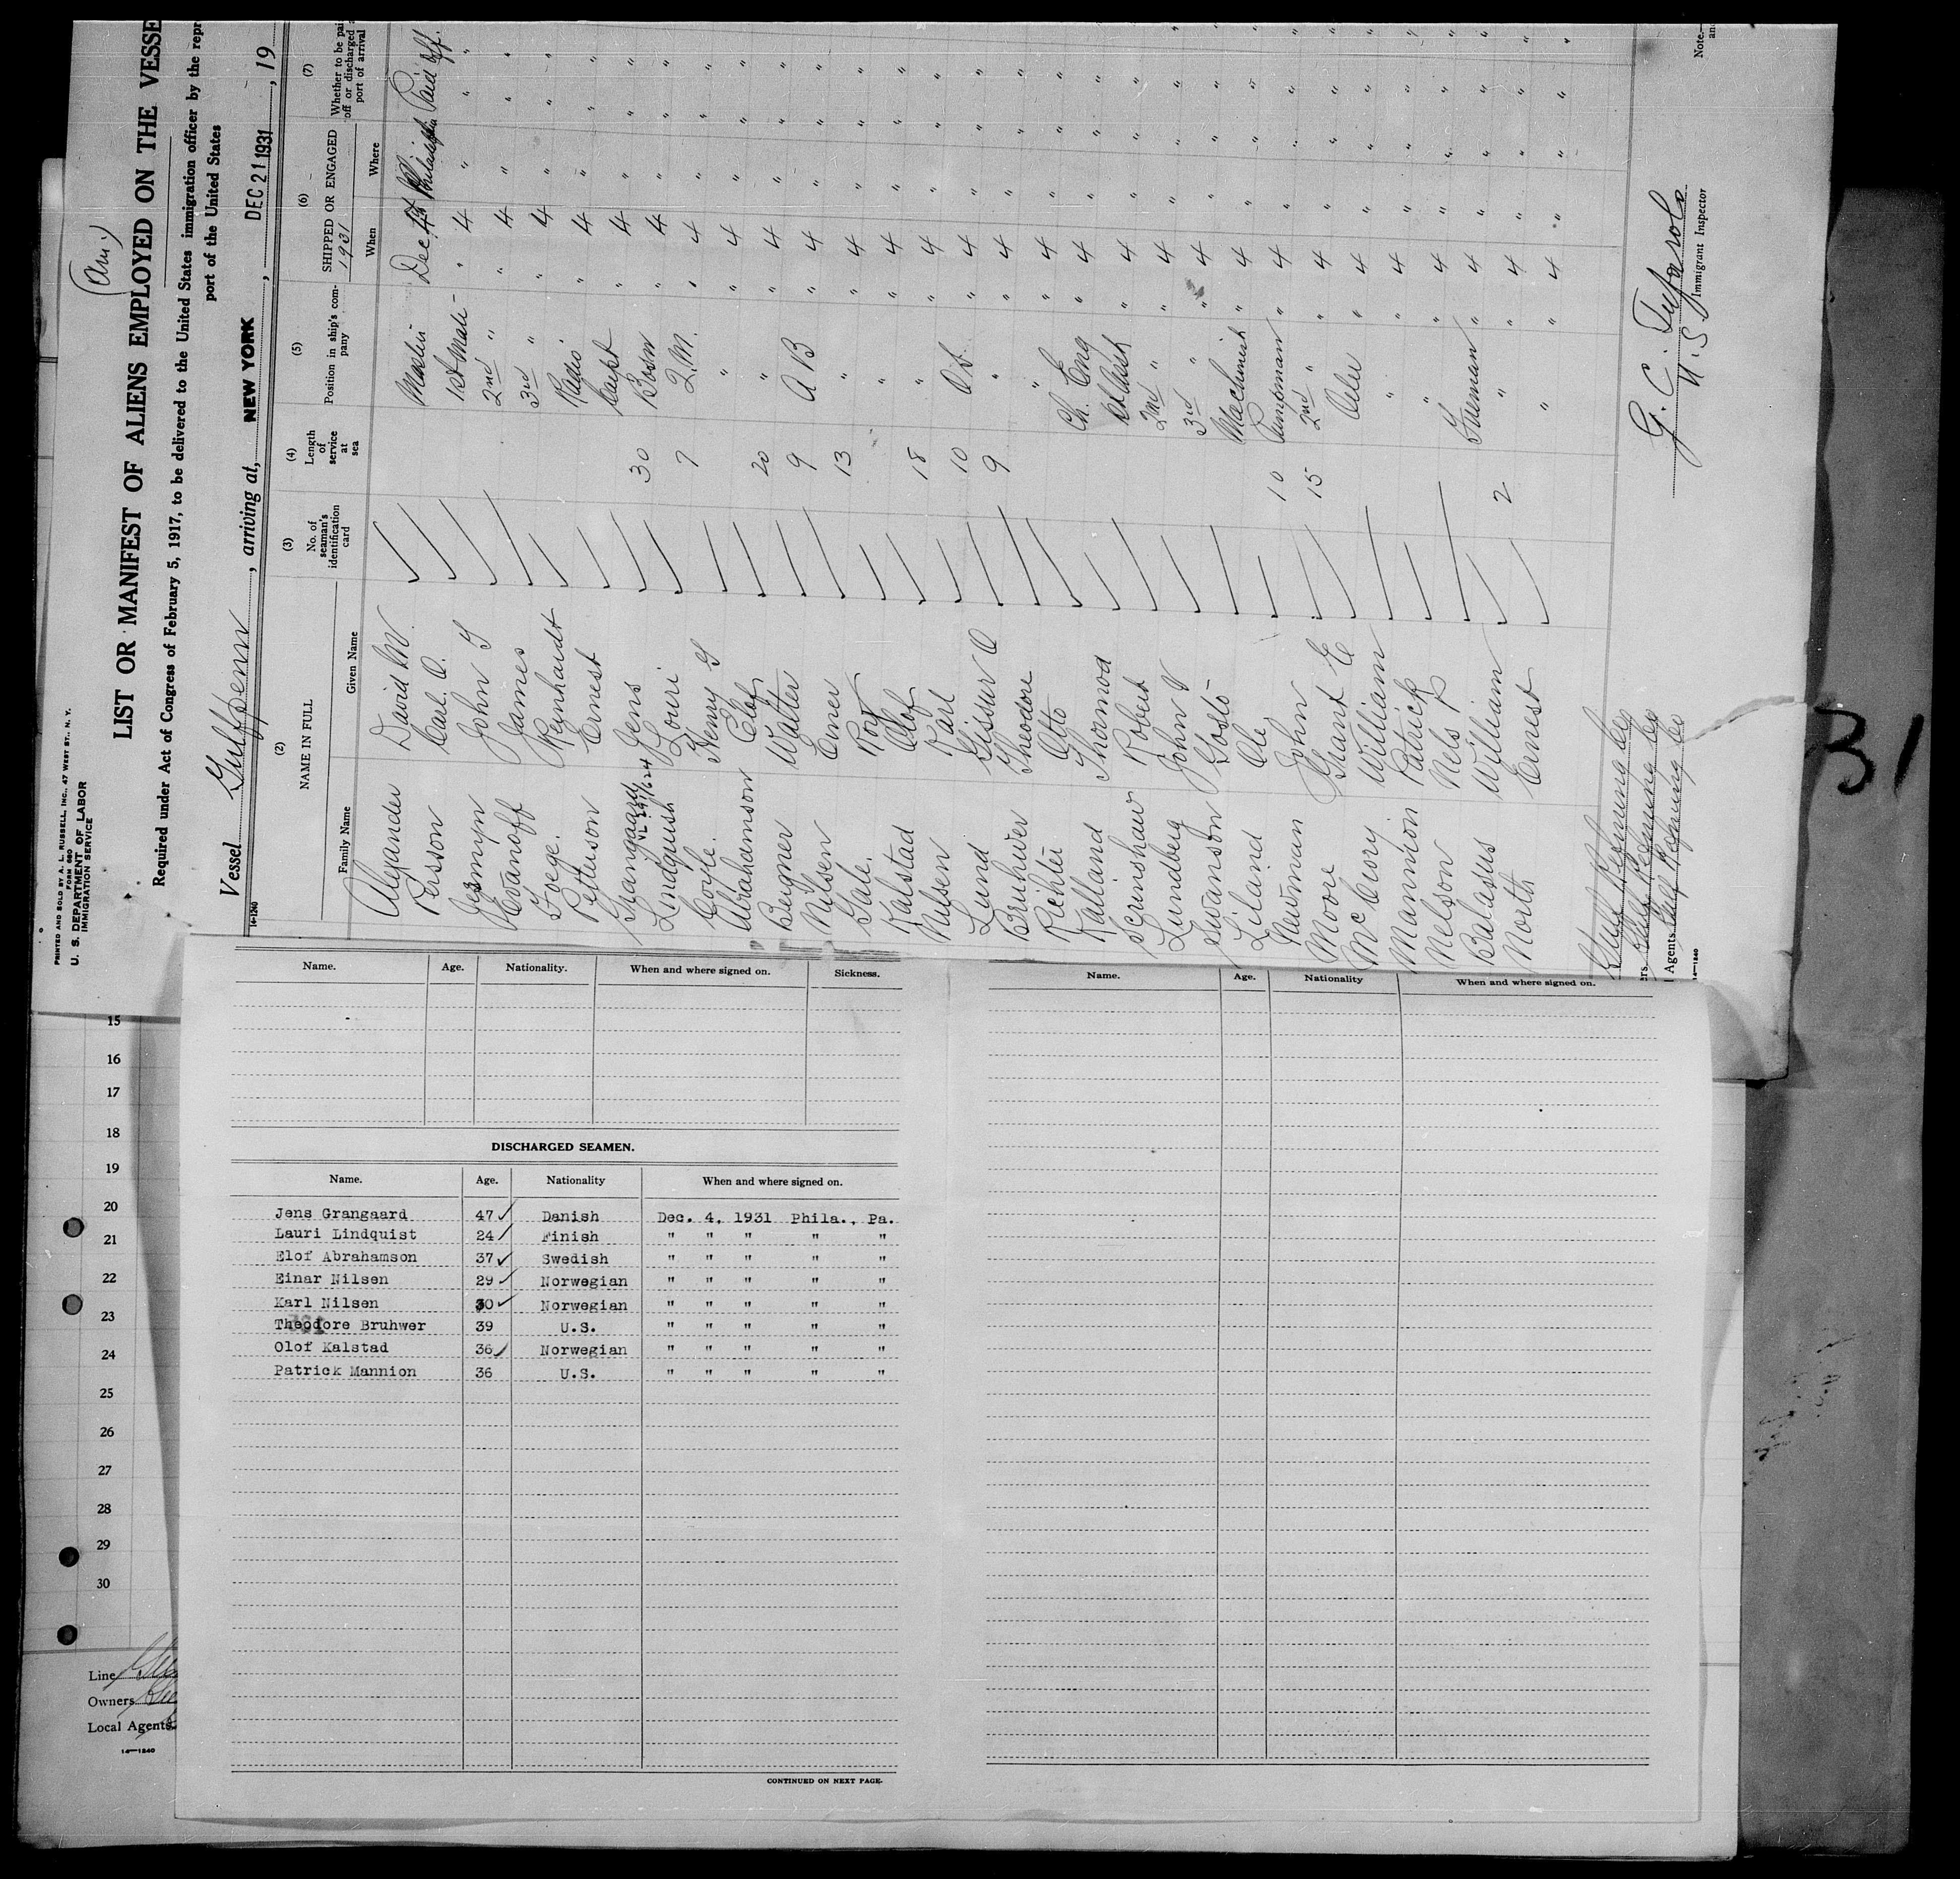 PRINTED AND SOLD BY A. L. RUSSELL, INC., 47 WEST ST., N. Y.
FORM 680
U. S. DEPARTMENT OF LABOR
IMMIGRATION SERVICE
(Am.)
LIST OR MANIFEST OF ALIENS EMPLOYED ON THE VESSE
Required under Act of Congress of February 5, 1917, to be delivered to the United States immigration officer by the repr
port of the United States
Vessel Gulfpenn, arriving at, NEW YORK, DEC 21 1931, 19
14-1240
(2) (3) (4) (5) (6) (7)
NAME IN FULL
Family Name Given Name
No. of seaman's identification card
Length of service at sea
Position in ship's company
SHIPPED OR ENGAGED
1931
When Where
Whether to be pai
off or discharged
port of arrival
Alexander David W. Master Dec. 4 Philadelphia Paid off.
Persson Carl O. 1st Mate " 4 " "
Jermyn John G 2nd " " 4 " "
Evanoff James 3rd " " 4 " "
Foege. Reinhardt Radio " 4 " "
Petterson Ernest Carpt " 4 " "
Grangaard Jens 30 Bosn " 4 " "
Lindquist Louri 7 Q.M. " 4 " "
Coyle. Henry G " " 4 " "
Abrahamson Elof 20 " " 4 " "
Beigner Walter 9 A B " 4 " "
Nilsen Einer 13 " " 4 " "
Gale. Roy " " 4 " "
Kalstad Olof 18 " " 4 " "
Nilsen Karl 10 O.S. " 4 " "
Lund Gissur O 9 " " 4 " "
Bruhwer Theodore " " 4 " "
Richter Otto Ch. Eng " 4 " "
Kalland Thormod 1st Asst " 4 " "
Scrimshaw Robert 2nd " " 4 " "
Lundberg John V 3rd " " 4 " "
Swanson Gosto Machinist " 4 " "
Liland Ole 10 Pumpman " 4 " "
Newman John 15 2nd " " 4 " "
Moore Grant E Oiler " 4 " "
McCrory William " " 4 " "
Mannion Patrick " " 4 " "
Nelson Nels R Fireman " 4 " "
Balasus William 2 " " 4 " "
North Ernest " " 4 " "
Gulf Refining Co
Gulf Refining Co
Agents Gulf Refining Co
14-1240
G. C. Tufarolo
U. S. Immigrant Inspector
Note.—
an
31
Name. Age. Nationality. When and where signed on. Sickness.
Name. Age. Nationality When and where signed on.
DISCHARGED SEAMEN.
Name. Age. Nationality When and where signed on.
Jens Grangaard 47 Danish Dec. 4, 1931 Phila., Pa.
Lauri Lindquist 24 Finish " " " " "
Elof Abrahamson 37 Swedish " " " " "
Einar Nilsen 29 Norwegian " " " " "
Karl Nilsen 30 Norwegian " " " " "
Theodore Bruhwer 39 U.S. " " " " "
Olof Kalstad 36 Norwegian " " " " "
Patrick Mannion 36 U.S. " " " " "
CONTINUED ON NEXT PAGE.
15
16
17
18
19
20
21
22
23
24
25
26
27
28
29
30
Line
Owners
Local Agents
14-1240